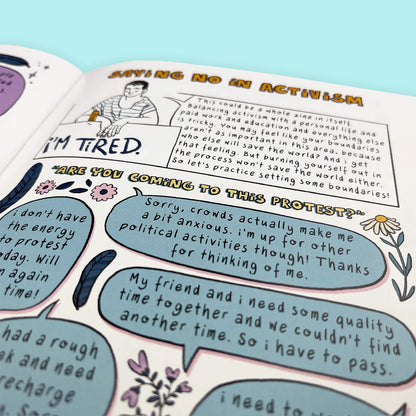 ple
s.
SAYING NO IN ACTIVISM
I'M TIRED.
This could be a whole zine in itself.
Balancing activism with a personal life and
paid work and education and everything else
is tricky. You may feel like your boundaries
aren't as important in this area, because
who else will save the world? And i get
that feeling. But burning yourself out in
the process won't save the world either.
So let's practice setting some boundaries!
"ARE YOU COMING TO THIS PROTEST?"
i don't have
the energy
to protest
day. Will
n again
time!
Sorry, crowds actually make me
a bit anxious. i'm up for other
political activities though! Thanks
for thinking of me.
My friend and i need some quality
time together and we couldn't find
another time. So i have to pass.
had a rough
ek and need
recharge
Sorr
i need to